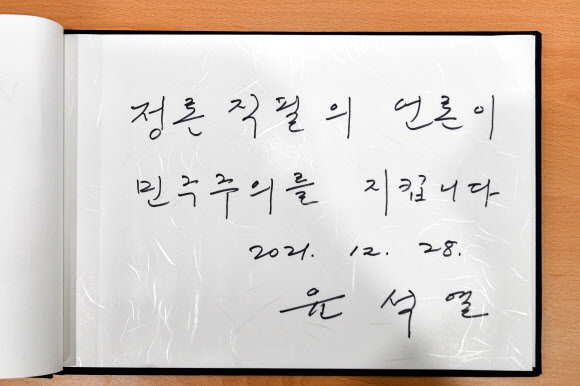 정론 직필의 언론이
민주주의를 지킵니다
2021. 12. 28.
윤석열